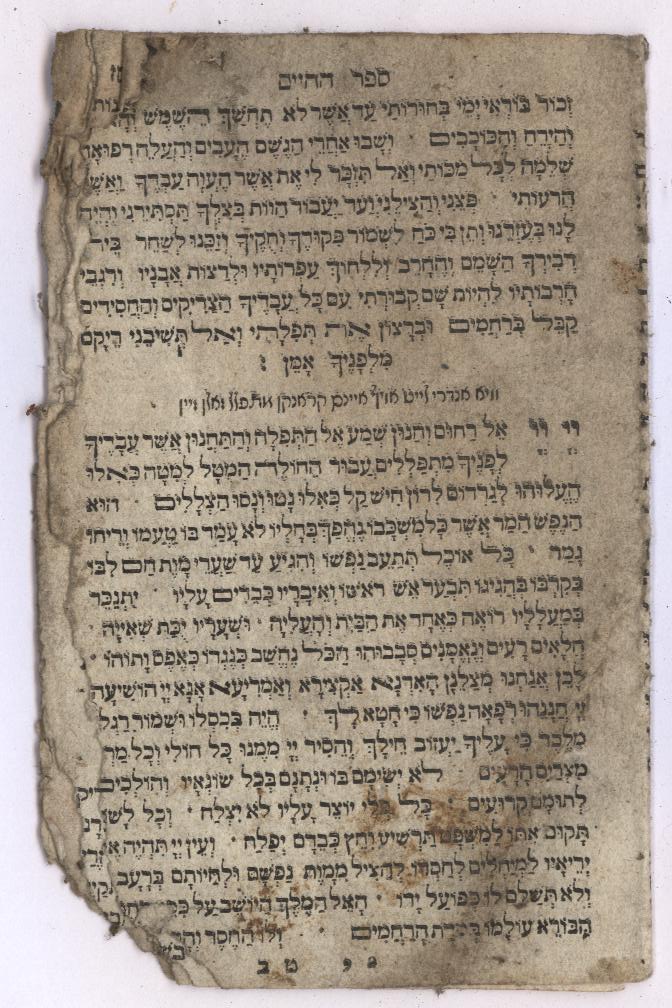 ספר החיים
זכור בוראי ימי בחורותי עד אשר לא תחשך השמש
והירח והכוכבים · ושבו אחרי הגשם העבים והעלה רפואה
שלמה לכל מכותי ואל תזכר לי את אשר העוה עבדך ואשר
הרעותי · פצני והצילני ועד יעבור הוות בצלך תסתירני והיה
לנו בעזרנו ותן בי כח לשמור פקודך וחוקיך וזכנו לשחר ביר
דבירך השמם והחרב וללחוך עפרותיו ולרצות אבניו ורגבי
חרבותיו להיות שם קבורתי עם כל עבדיך הצדיקים והחסידים
קבל ברחמים וברצון את תפלתי ואל תשיבני ריקם
מלפניך אמן :
וויא אנדרי לייט אויף איינם קראנקן
יי יי אל רחום וחנון שמע אל התפלה והתחנון אשר עבדיך
לפניך מתפללים עבור החולה המטל למטה כאלו
העלוהו לגרדום לדון חיש קל כאלו נטו ונסו הצללים · הוא
הנפש המר אשר כל משכבו נהפך בחליו לא עמד בו טעמו וריחו
נמר · כל אוכל תתעב נפשו והגיע עד שערי מות חם לבו
בקרבו בהגיגו תבער אש ראשו ואיבריו כבדים עליו · יתנכר
במעלליו רואה כאחד את הבית והעליה · ושעריו יכת שאייה
חלאים רעים ונאמנים סבבוהו הכל נחשב כנגדו כאפס ותוהו
לכן אנחנו מצלנן האדנא אקצירא ואמריעא אנא יי הושיעה
יי חננהו רפאה נפשו כי חטא לך · היה בכסלו ושמור רגלו
מלכד כי עליך יעזוב חילך והסיר יי ממנו כל חולי וכל מדוי
מצרים הרעים לא ישימם בו ונתנם בכל שונאיו והולכים
לתומם קרועים · כל כלי יוצר עליו לא יצלח · וכל לשון
תקום אתו למשפט תרשיע וחץ כבדם יפלח · ועין יי תהיה אל
יריאיו למיחלים לחסדו להציל ממות נפשם ולחיותם ברעב
ולא תשלם לו כפועל ידו · האל המלך היושב על
הבורא עולמו במדת הרחמים · ולו החסד
ט ב